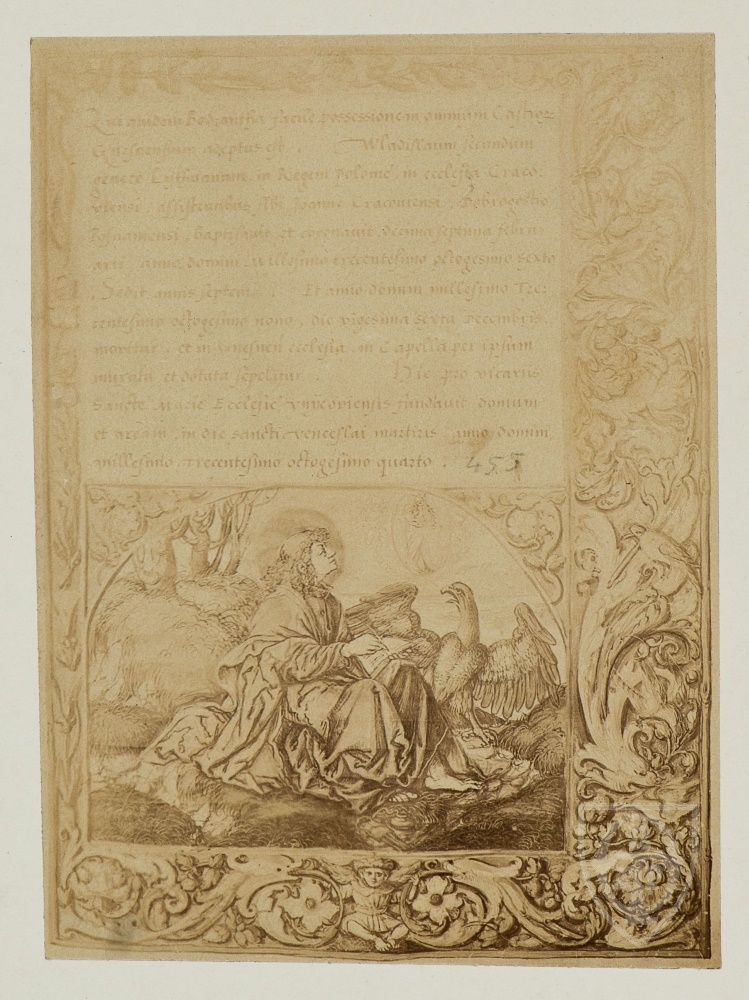 Qui quidem Bodzantha facile possessionem omnium Castror
Gnesnensium adeptus est . Wladislaum secundum
genere Lythuanum, in Regem polonie, in ecclesia Craco-
viensi, assistentibus sibi Joanne Cracouiensi, Dobrogostio
posnaniensi, baptisauit et coronauit, decima septima febru-
arii, anno, domini, Millesimo trecentesimo octogesimo sexto
. Sedit annis septem . Et anno domini millesimo Tre-
centesimo octogesimo nono, die vigesima sexta Decembris,
moritur, et in Gnesnen ecclesia, in Capella per ipsum
murata et dotata sepelitur . Hic pro vicariis
Sancte Marie Ecclesie vnyeoviensis fundauit domum
et aream, in die sancti venceslai martiris, anno domini,
millesimo trecentesimo octogesimo quarto . 455